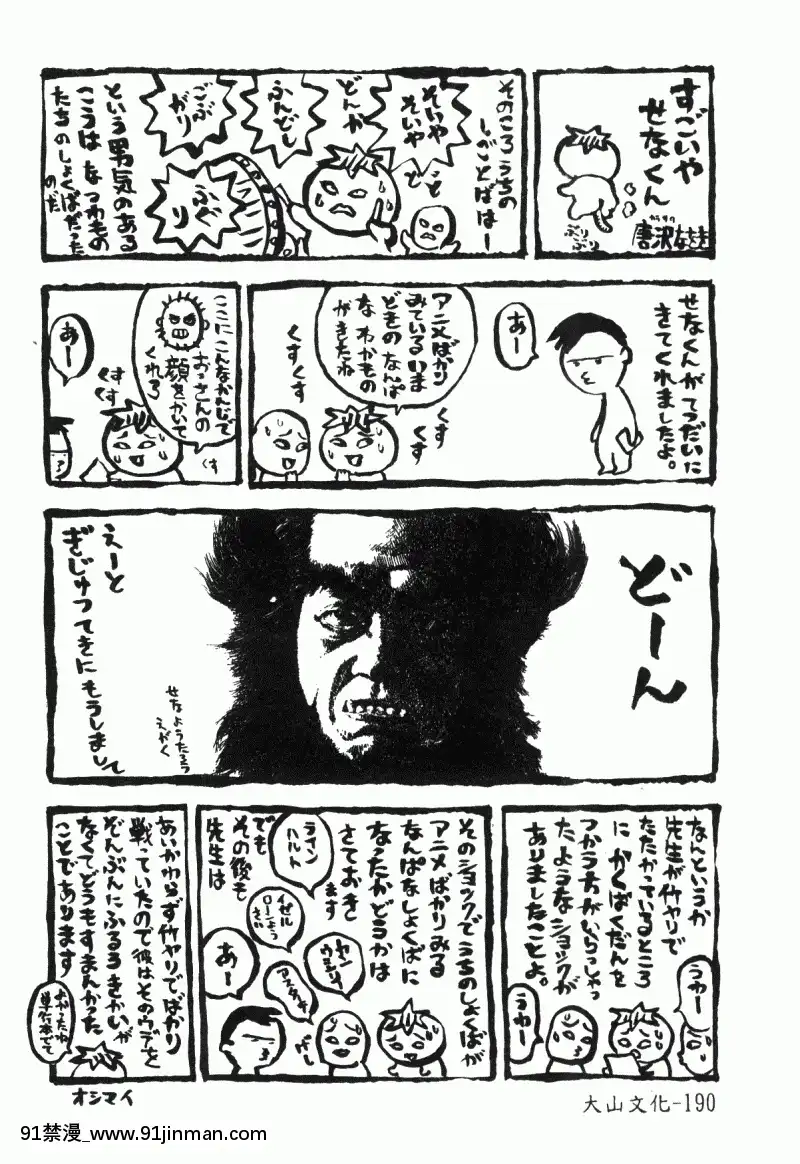 すごいや
せなくん
唐沢なをき
ぶりぶり
そのころうちの
しごとばは—
どど
そいや
そいや
どんか
ふんどし
ごぶ
がり
ふぐ
り
という男気のある
こうはなつわもの
たちのしょくばだった
のだ
せなくんがてつだいに
きてくれましたよ。
あー
アニメばかり
みているいま
どきのなんぱ
なわかもの
がきたね
くす
くす
くすくす
ここにこんなかんじで
おっさんの
顔をかいて
くれろ
くす
くすくす
あー
どーん
せなようたろう
えがく
えーと
ぎじゅつてきにもうしまして
なんというか
先生が竹ヤリで
たたかっているところ
にかくばくだんを
つかう方がいらっしゃっ
たようなショックが
ありましたことよ。
うわー
うわー
そのショックでうちのしょくばが
アニメばかりみる
なんぱなしょくばに
なったかどうかは
さておき
ます
ライン
ハルト
でも
その後も
先生は
イゼル
ローンよう
さい
ヤン
ウェンリイ
アスカ
あー
あいかわらず竹ヤリでばかり
戦っていたので彼はそのウデを
ぞんぶんにふるうきかいが
なくてどうもすまんかった
ことであります
よかったね
単行本でて
オシマイ
大山文化-190
91禁漫_www.91jinman.com